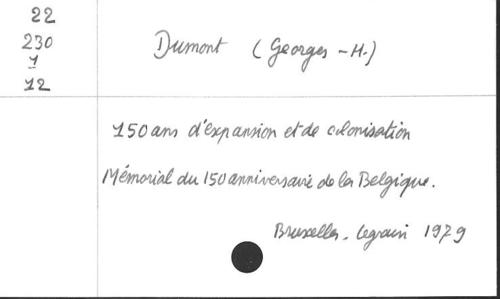 22
230
1
12
Dumont (Georges-H.)
150 ans d'expansion et de colonisation
Mémorial du 150 anniversaire de la Belgique.
Bruxelles. Legrain 1979